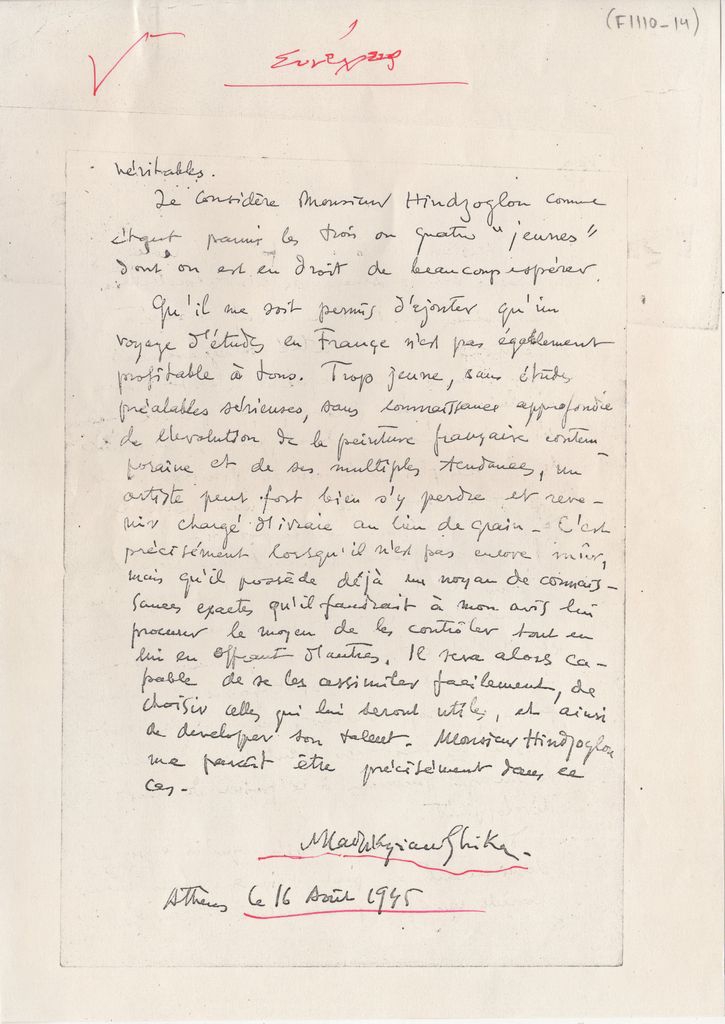 (F1110-14)
Συνέχεια
véritables.
Je considère Monsieur Hindzoglou comme
étant parmis les trois ou quatre "jeunes"
dont on est en droit de beaucoup espérer.
Qu'il me soit permis d'ajouter qu'un
voyage d'études en France n'est pas également
profitable à tous. Trop jeune, sans études
préalables sérieuses, sans connaissance approfondie
de l'évolution de la peinture française contem-
poraine et de ses multiples tendances, un
artiste peut fort bien s'y perdre et reve-
nir chargé d'ivraie au lieu de grain - C'est
précisément lorsqu'il n'est pas encore mûr,
mais qu'il possède déjà un noyau de connais-
sances exactes qu'il faudrait à mon avis lui
procurer le moyen de les contrôler tout en
lui en offrant d'autres. Il sera alors ca-
pable de se les assimiler facilement, de
choisir celles qui lui seront utiles, et ainsi
de developer son talent. Monsieur Hindzoglou
me parait être précisément dans ce
cas-
Ghika-
Athenes le 16 Août 1945